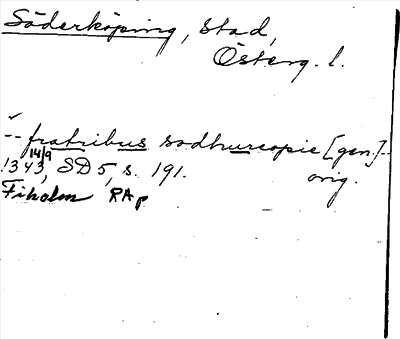 Söderköping, Stad,
Österg. l.
-- fratribus sodhurcopie [gen.]--
1343 14/9, SD 5, s. 191. orig.
Fiholm RAp